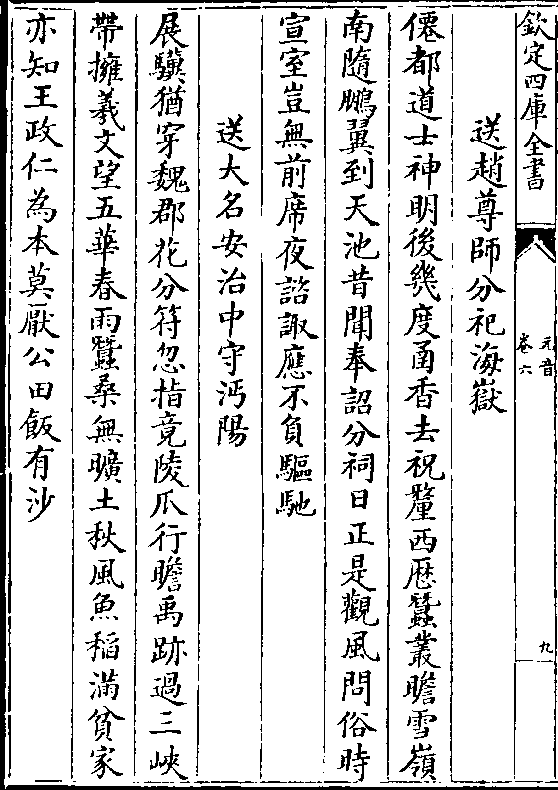 欽定四庫全書
元音
卷六
九
送趙尊師分祀海嶽
僊都道士神明後幾度函香去祝釐西歴蠶叢瞻雪嶺
南隨鵬翼到天池昔聞奉詔分祠日正是觀風問俗時
宣室豈無前席夜諮諏應不負驅馳
送大名安治中守沔陽
展驥猶穿魏郡花分符忽指竟陵瓜行瞻禹跡過三峽
帶擁羲文望五華春雨蠶桑無曠土秋風魚稻滿貧家
亦知王政仁為本莫厭公田飯有沙